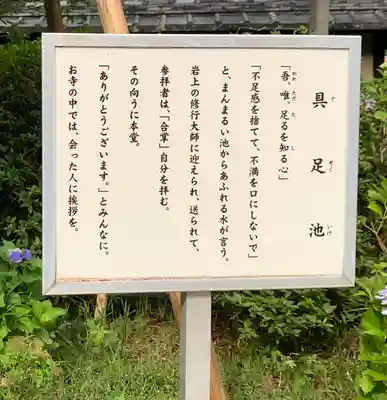 具足池
ぐそくいけ
「吾、唯、足るを知る心」
われただたし
「不足感を捨てて、不満を口にしないで」
と、まんまるい池からあふれる水が言う。
岩上の修行大師に迎えられ、送られて、
参拝者は、「合掌」自分を拝む。
その向うに本堂。
「ありがとうございます。」とみんなに。
お寺の中では、会った人に挨拶を。